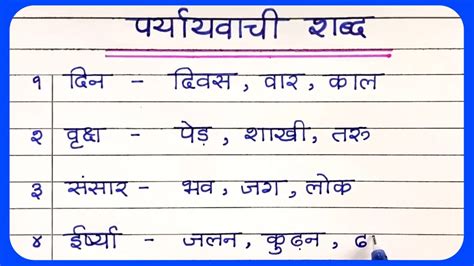 पर्यायवाची शब्द
१ दिन - दिवस , वार , काल
२ वृक्ष - पेड़ , शाखी , तरु
३ संसार - भव , जग , लोक
४ ईर्ष्या - जलन , कुढ़न ,